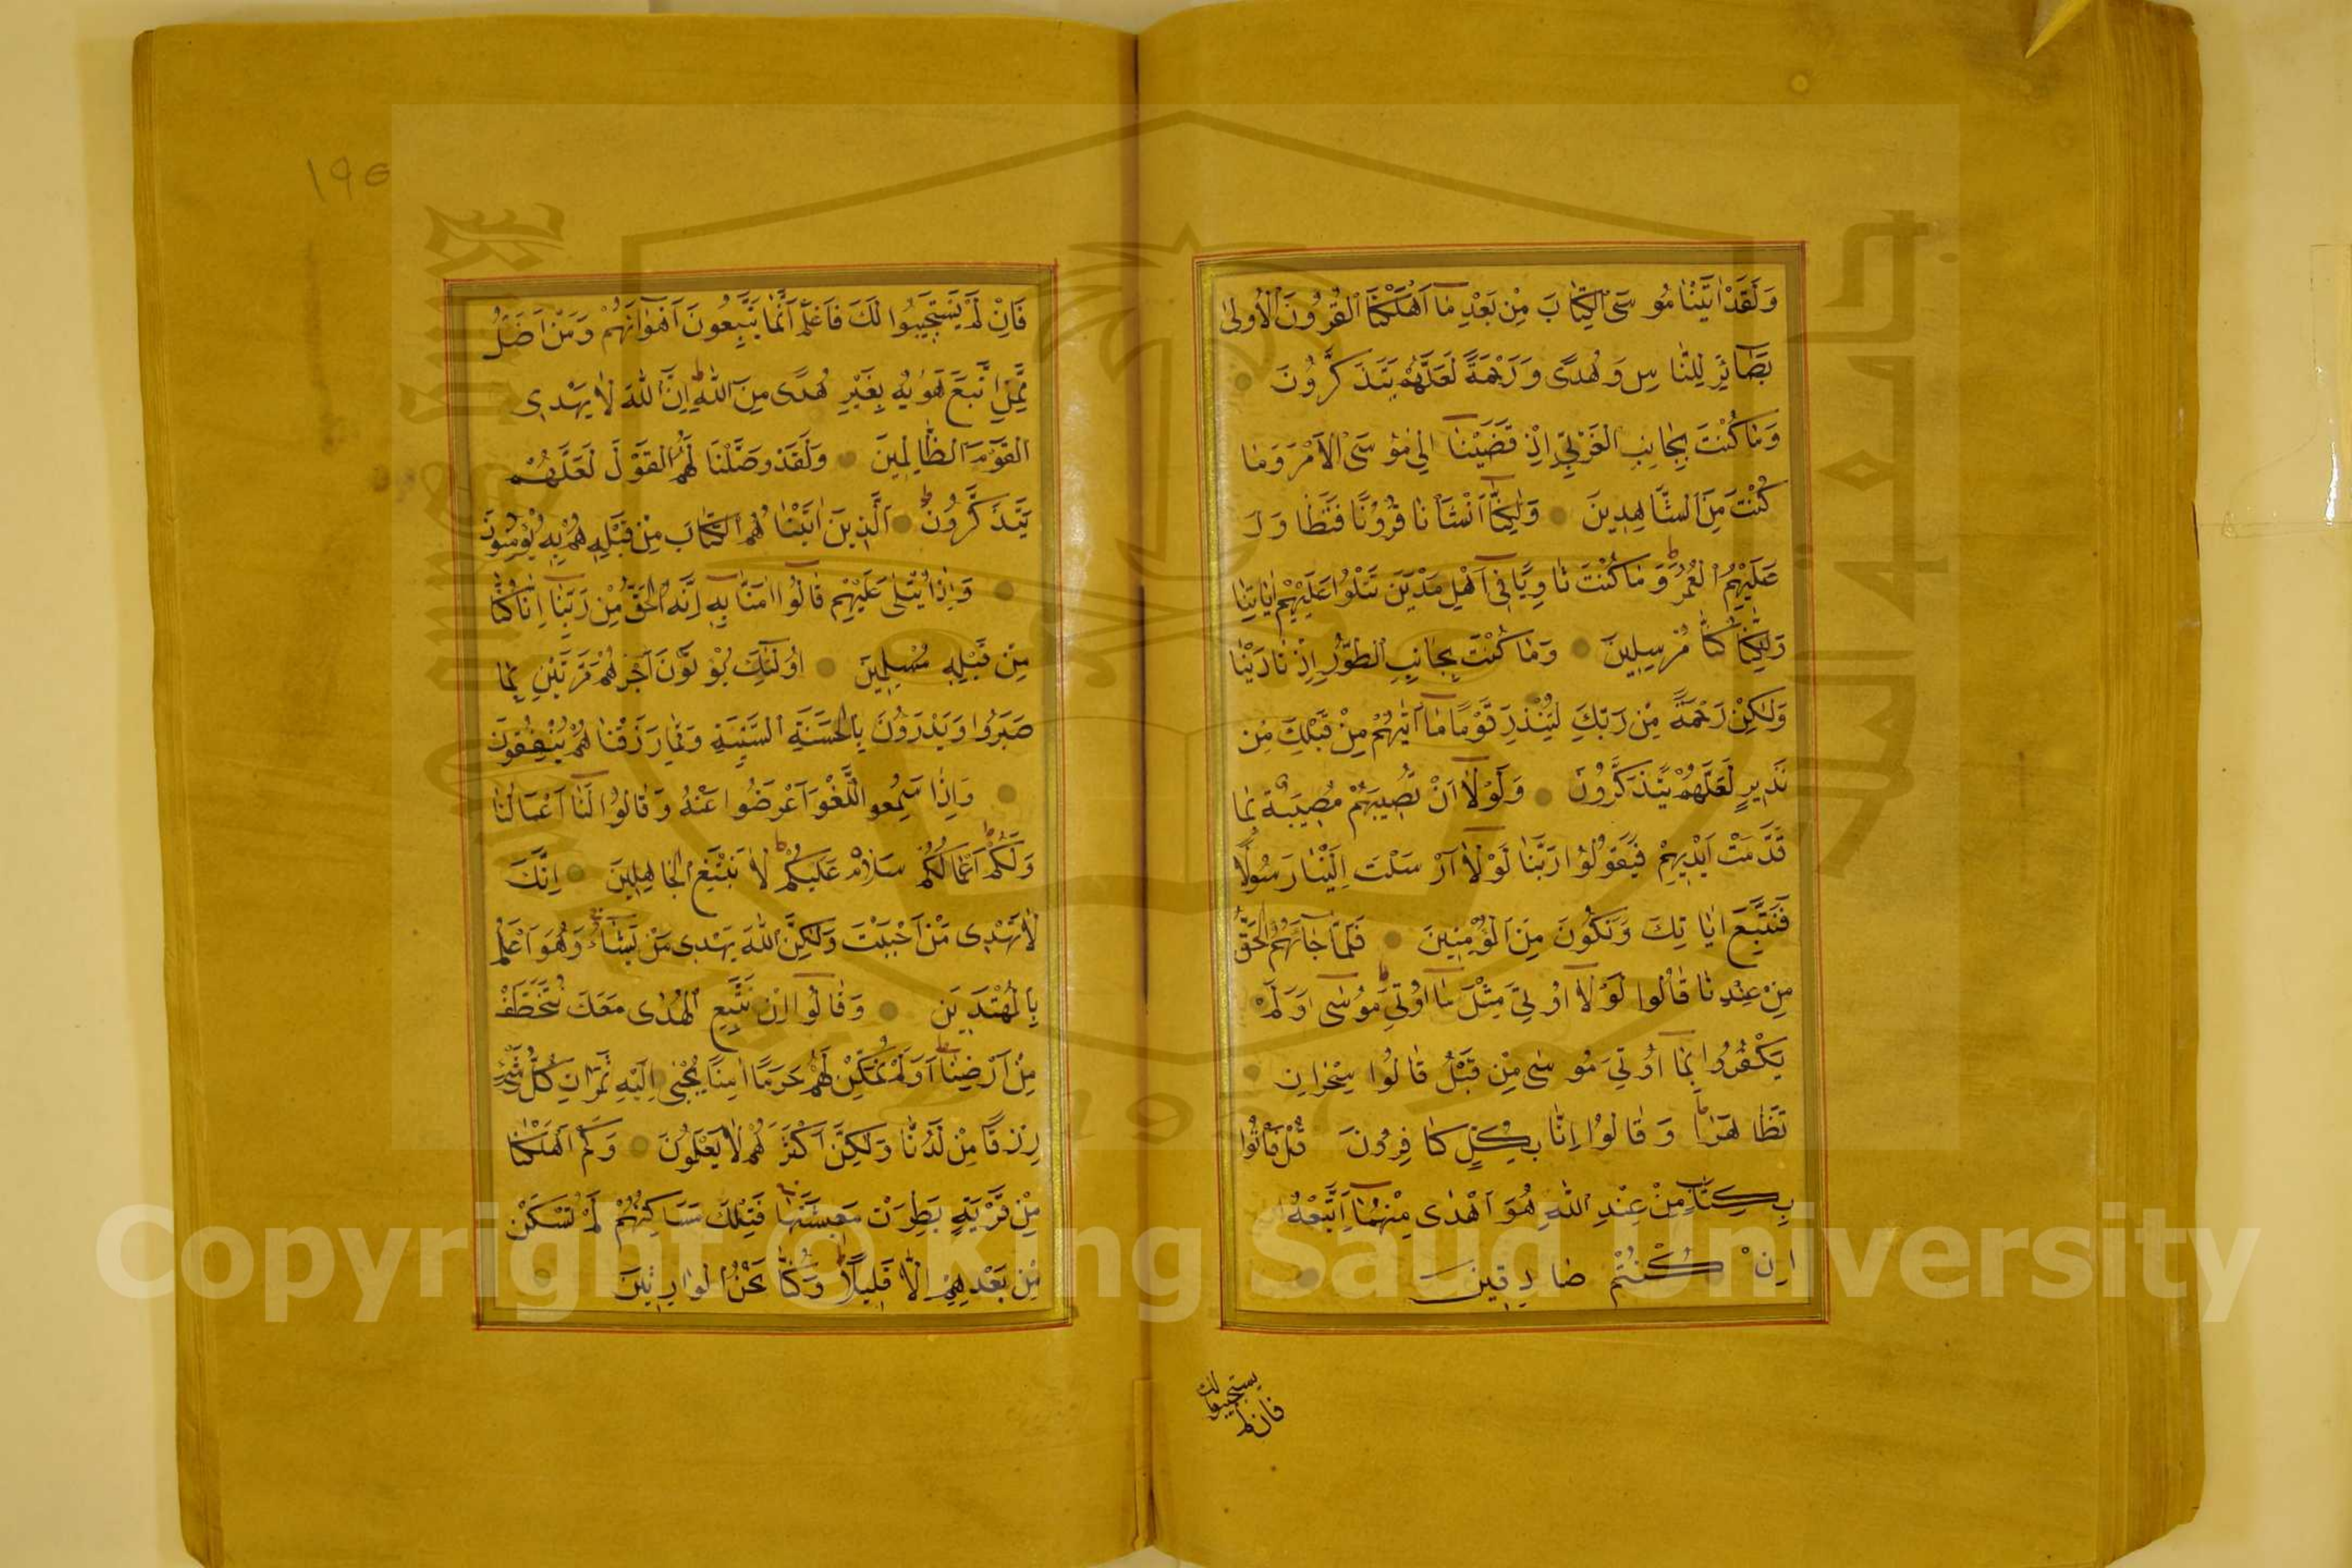 وَلَقَدْ اٰتَيْنٰا مُوسَى الْكِتٰابَ مِنْ بَعْدِ مٰا اَهْلَكْنَا الْقُرُونَ الْاُولىٰ
بَصٰائِرَ لِلنّٰاسِ وَهُدًى وَرَحْمَةً لَعَلَّهُمْ يَتَذَكَّرُونَ
وَمٰا كُنْتَ بِجٰانِبِ الْغَرْبِيِّ اِذْ قَضَيْنٰا اِلىٰ مُوسَى الْاَمْرَ وَمٰا
كُنْتَ مِنَ الشّٰاهِدِينَ وَلٰكِنّٰا اَنْشَأْنٰا قُرُونًا فَتَطٰاوَلَ
عَلَيْهِمُ الْعُمُرُ وَمٰا كُنْتَ ثٰاوِيًا فِى اَهْلِ مَدْيَنَ تَتْلُوا عَلَيْهِمْ اٰيٰاتِنٰا
وَلٰكِنّٰا كُنّٰا مُرْسِلِينَ وَمٰا كُنْتَ بِجٰانِبِ الطُّورِ اِذْ نٰادَيْنٰا
وَلٰكِنْ رَحْمَةً مِنْ رَبِّكَ لِتُنْذِرَ قَوْمًا مٰا اَتٰيهُمْ مِنْ قَبْلِكَ مِنْ
نَذِيرٍ لَعَلَّهُمْ يَتَذَكَّرُونَ وَلَوْلٰا اَنْ تُصِيبَهُمْ مُصِيبَةٌ بِمٰا
قَدَّمَتْ اَيْدِيهِمْ فَيَقُولُوا رَبَّنٰا لَوْلٰا اَرْسَلْتَ اِلَيْنٰا رَسُولًا
فَنَتَّبِعَ اٰيٰاتِكَ وَنَكُونَ مِنَ الْمُؤْمِنِينَ فَلَمّٰا جٰاءَهُمُ الْحَقُّ
مِنْ عِنْدِنٰا قٰالُوا لَوْلٰا اُوتِىَ مِثْلَ مٰا اُوتِىَ مُوسٰى اَوَلَمْ
يَكْفُرُوا بِمٰا اُوتِىَ مُوسٰى مِنْ قَبْلُ قٰالُوا سِحْرٰانِ
تَظٰاهَرٰا وَقٰالُوا اِنّٰا بِكُلٍّ كٰافِرُونَ قُلْ فَأْتُوا
بِكِتٰابٍ مِنْ عِنْدِ اللّٰهِ هُوَ اَهْدٰى مِنْهُمٰا اَتَّبِعْهُ
اِنْ كُنْتُمْ صٰادِقِينَ
فان لم
يستجيبوا لك
١٩٥
فَاِنْ لَمْ يَسْتَجِيبُوا لَكَ فَاعْلَمْ اَنَّمٰا يَتَّبِعُونَ اَهْوٰاءَهُمْ وَمَنْ اَضَلُّ
مِمَّنِ اتَّبَعَ هَوٰيهُ بِغَيْرِ هُدًى مِنَ اللّٰهِ اِنَّ اللّٰهَ لٰا يَهْدِى
الْقَوْمَ الظّٰالِمِينَ وَلَقَدْ وَصَّلْنٰا لَهُمُ الْقَوْلَ لَعَلَّهُمْ
يَتَذَكَّرُونَ اَلَّذِينَ اٰتَيْنٰاهُمُ الْكِتٰابَ مِنْ قَبْلِهِ هُمْ بِهِ يُؤْمِنُونَ
وَاِذٰا يُتْلىٰ عَلَيْهِمْ قٰالُوا اٰمَنّٰا بِهِ اِنَّهُ الْحَقُّ مِنْ رَبِّنٰا اِنّٰا كُنّٰا
مِنْ قَبْلِهِ مُسْلِمِينَ اُولٰئِكَ يُؤْتَوْنَ اَجْرَهُمْ مَرَّتَيْنِ بِمٰا
صَبَرُوا وَيَدْرَؤُنَ بِالْحَسَنَةِ السَّيِّئَةِ وَمِمّٰا رَزَقْنٰاهُمْ يُنْفِقُونَ
وَاِذٰا سَمِعُوا اللَّغْوَ اَعْرَضُوا عَنْهُ وَقٰالُوا لَنٰا اَعْمٰالُنٰا
وَلَكُمْ اَعْمٰالُكُمْ سَلٰامٌ عَلَيْكُمْ لٰا نَبْتَغِى الْجٰاهِلِينَ اِنَّكَ
لٰا تَهْدِى مَنْ اَحْبَبْتَ وَلٰكِنَّ اللّٰهَ يَهْدِى مَنْ يَشٰاءُ وَهُوَ اَعْلَمُ
بِالْمُهْتَدِينَ وَقٰالُوا اِنْ نَتَّبِعِ الْهُدٰى مَعَكَ نُتَخَطَّفْ
مِنْ اَرْضِنٰا اَوَلَمْ نُمَكِّنْ لَهُمْ حَرَمًا اٰمِنًا يُجْبٰى اِلَيْهِ ثَمَرٰاتُ كُلِّ شَىْءٍ
رِزْقًا مِنْ لَدُنّٰا وَلٰكِنَّ اَكْثَرَهُمْ لٰا يَعْلَمُونَ وَكَمْ اَهْلَكْنٰا
مِنْ قَرْيَةٍ بَطِرَتْ مَعِيشَتَهٰا فَتِلْكَ مَسٰاكِنُهُمْ لَمْ تُسْكَنْ
مِنْ بَعْدِهِمْ اِلّٰا قَلِيلًا وَكُنّٰا نَحْنُ الْوٰارِثِينَ
Copyright © King Saud University